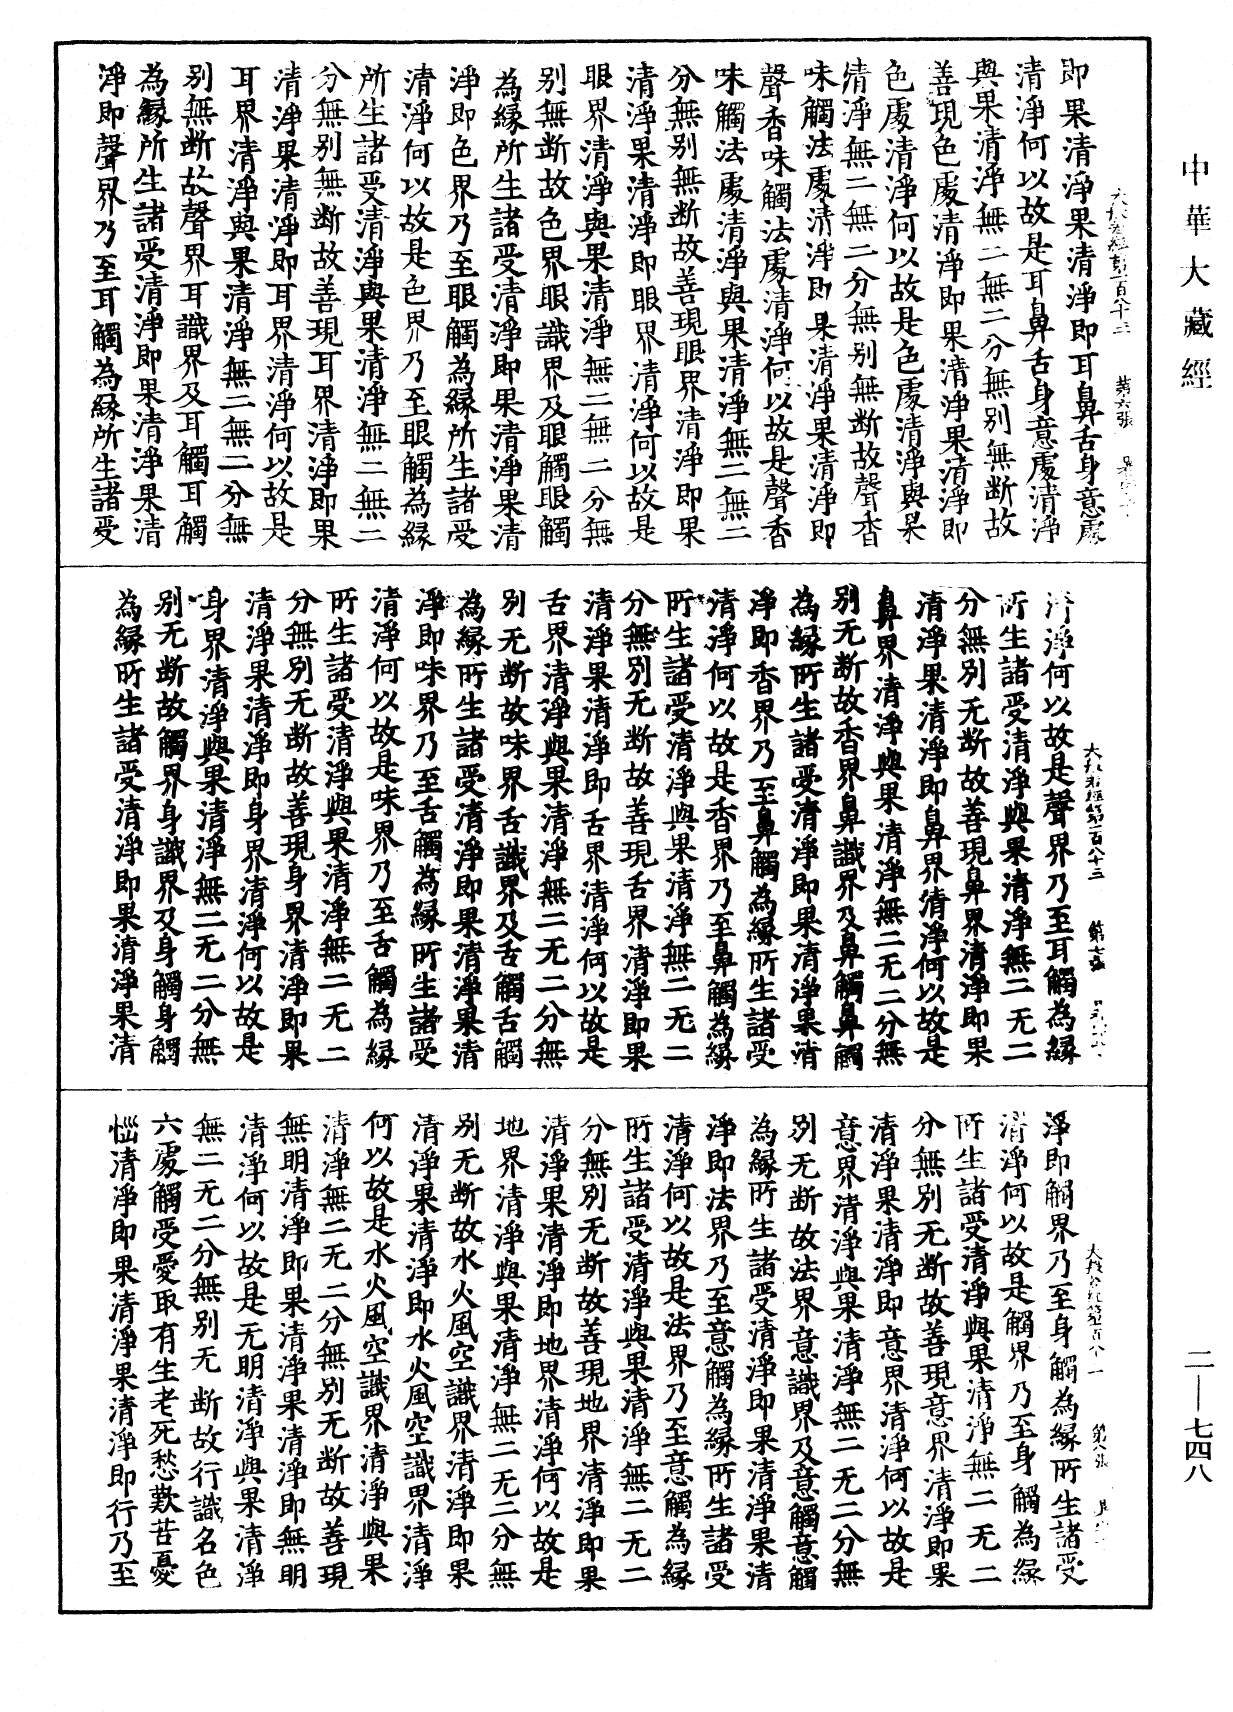 中華大藏經
即果清淨果清淨即耳鼻舌身意處
清淨何以故是耳鼻舌身意處清淨
與果清淨無二無二分無別無断故
善現色處清淨即果清淨果清淨即
色處清淨何以故是色處清淨與果
清淨無二無二分無别無断故聲香
味觸法處清淨即果清淨果清淨即
聲香味觸法處清淨何以故是聲香
味觸法處清淨與果清淨無二無二
分無别無断故善現眼界清淨即果
清淨果清淨即眼界清淨何以故是
眼界清淨與果清淨無二無二分無
别無断故色界眼識界及眼觸眼觸
為縁所生諸受清淨即果清淨果清
淨即色界乃至眼觸為縁所生諸受
清淨何以故是色界乃至眼觸為縁
所生諸受清淨與果清淨無二無二
分無别無断故善現耳界清淨即果
清淨果清淨即耳界清淨何以故是
耳界清淨與果清淨無二無二分無
别無断故聲界耳識界及耳觸耳觸
為縁所生諸受清淨即果清淨果清
淨即聲界乃至耳觸為縁所生諸受
大般若經第一百八十三 第七張
清淨何以故是聲界乃至耳觸為縁
所生諸受清淨與果清淨無二无二
分無别无断故善現鼻界清淨即果
清淨果清淨即鼻界清淨何以故是
鼻界清淨與果清淨無二无二分無
别无断故香界鼻識界及鼻觸鼻觸
為縁所生諸受清淨即果清淨果清
淨即香界乃至鼻觸為縁所生諸受
清淨何以故是香界乃至鼻觸為縁
所生諸受清淨與果清淨無二无二
分無别无断故善現舌界清淨即果
清淨果清淨即舌界清淨何以故是
舌界清淨與果清淨無二无二分無
别无断故味界舌識界及舌觸舌觸
為縁所生諸受清淨即果清淨果清
淨即味界乃至舌觸為縁所生諸受
清淨何以故是味界乃至舌觸為縁
所生諸受清淨與果清淨無二无二
分無别无断故善現身界清淨即果
清淨果清淨即身界清淨何以故是
身界清淨與果清淨無二无二分無
别无断故觸界身識界及身觸身觸
為縁所生諸受清淨即果清淨果清
淨即觸界乃至身觸為縁所生諸受
清淨何以故是觸界乃至身觸為縁
所生諸受清淨與果清淨無二无二
分無别无断故善現意界清淨即果
清淨果清淨即意界清淨何以故是
意界清淨與果清淨無二无二分無
别无断故法界意識界及意觸意觸
為縁所生諸受清淨即果清淨果清
淨即法界乃至意觸為縁所生諸受
清淨何以故是法界乃至意觸為縁
所生諸受清淨與果清淨無二无二
分無别无断故善現地界清淨即果
清淨果清淨即地界清淨何以故是
地界清淨與果清淨無二无二分無
别无断故水火風空識界清淨即果
清淨果清淨即水火風空識界清淨
何以故是水火風空識界清淨與果
清淨無二无二分無别无断故善現
無明清淨即果清淨果清淨即無明
清淨何以故是无明清淨與果清淨
無二无二分無别无断故行識名色
六處觸受愛取有生老死愁歎苦憂
惱清淨即果清淨果清淨即行乃至
二—七四八